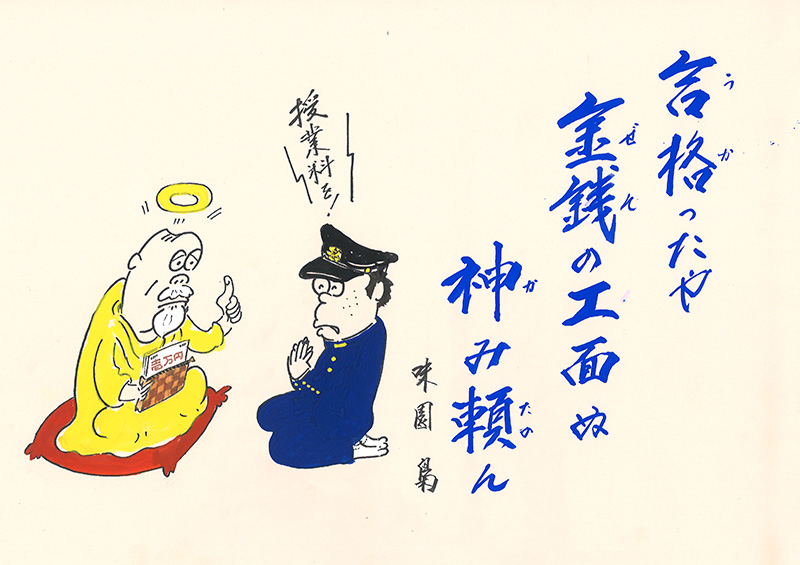 合格ったや
うか
金銭の工面ぬ
ぜん
神み頼ん
か たの
味園 梟
授業料を！
壱万円